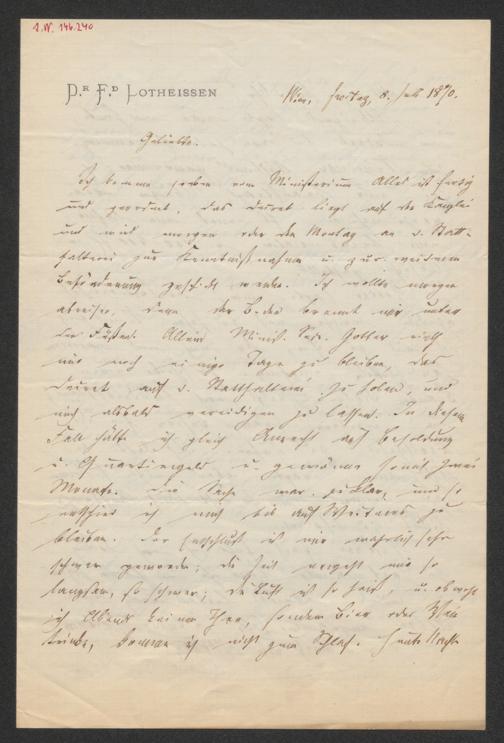 I.N. 146.240
Dr Fd Lotheissen
Wien, Freitag, 8. Juli 1870.
Geliebte.
Ich komme soeben vom Ministerium. Alles ist fertig
und geordnet, das Decret liegt auf der Kanzlei
und wird morgen oder den Montag an d. Statt-
halterei zur Kenntnißnahme u. zur weiteren
Beförderung geschickt werden. Ich wollte morgen
abreisen, denn der Boden brennt mir unter
den Füßen. Allein Minist. Sec. Gotter rieth
mir noch einige Tage zu bleiben, das
Decret auf d. Statthalterei zu holen, und
mich alsbald vereidigen zu lassen. In diesem
Fall hätte ich gleich Anrecht auf Besoldung
u. Quartiergeld u. gewönne somit zwei
Monate. Die Sache war zu klar, und so
entschied ich mich bis auf Weiteres zu
bleiben. Der Entschluß ist mir wahrlich sehr
schwer geworden; die Zeit vergeht mir so
langsam, so schwer; die Luft ist so heiß, u. obwohl
ich Abends keinen Thee, sondern Bier oder Wein
trinke, komme ich nicht zum Schlaf. Heute Nacht